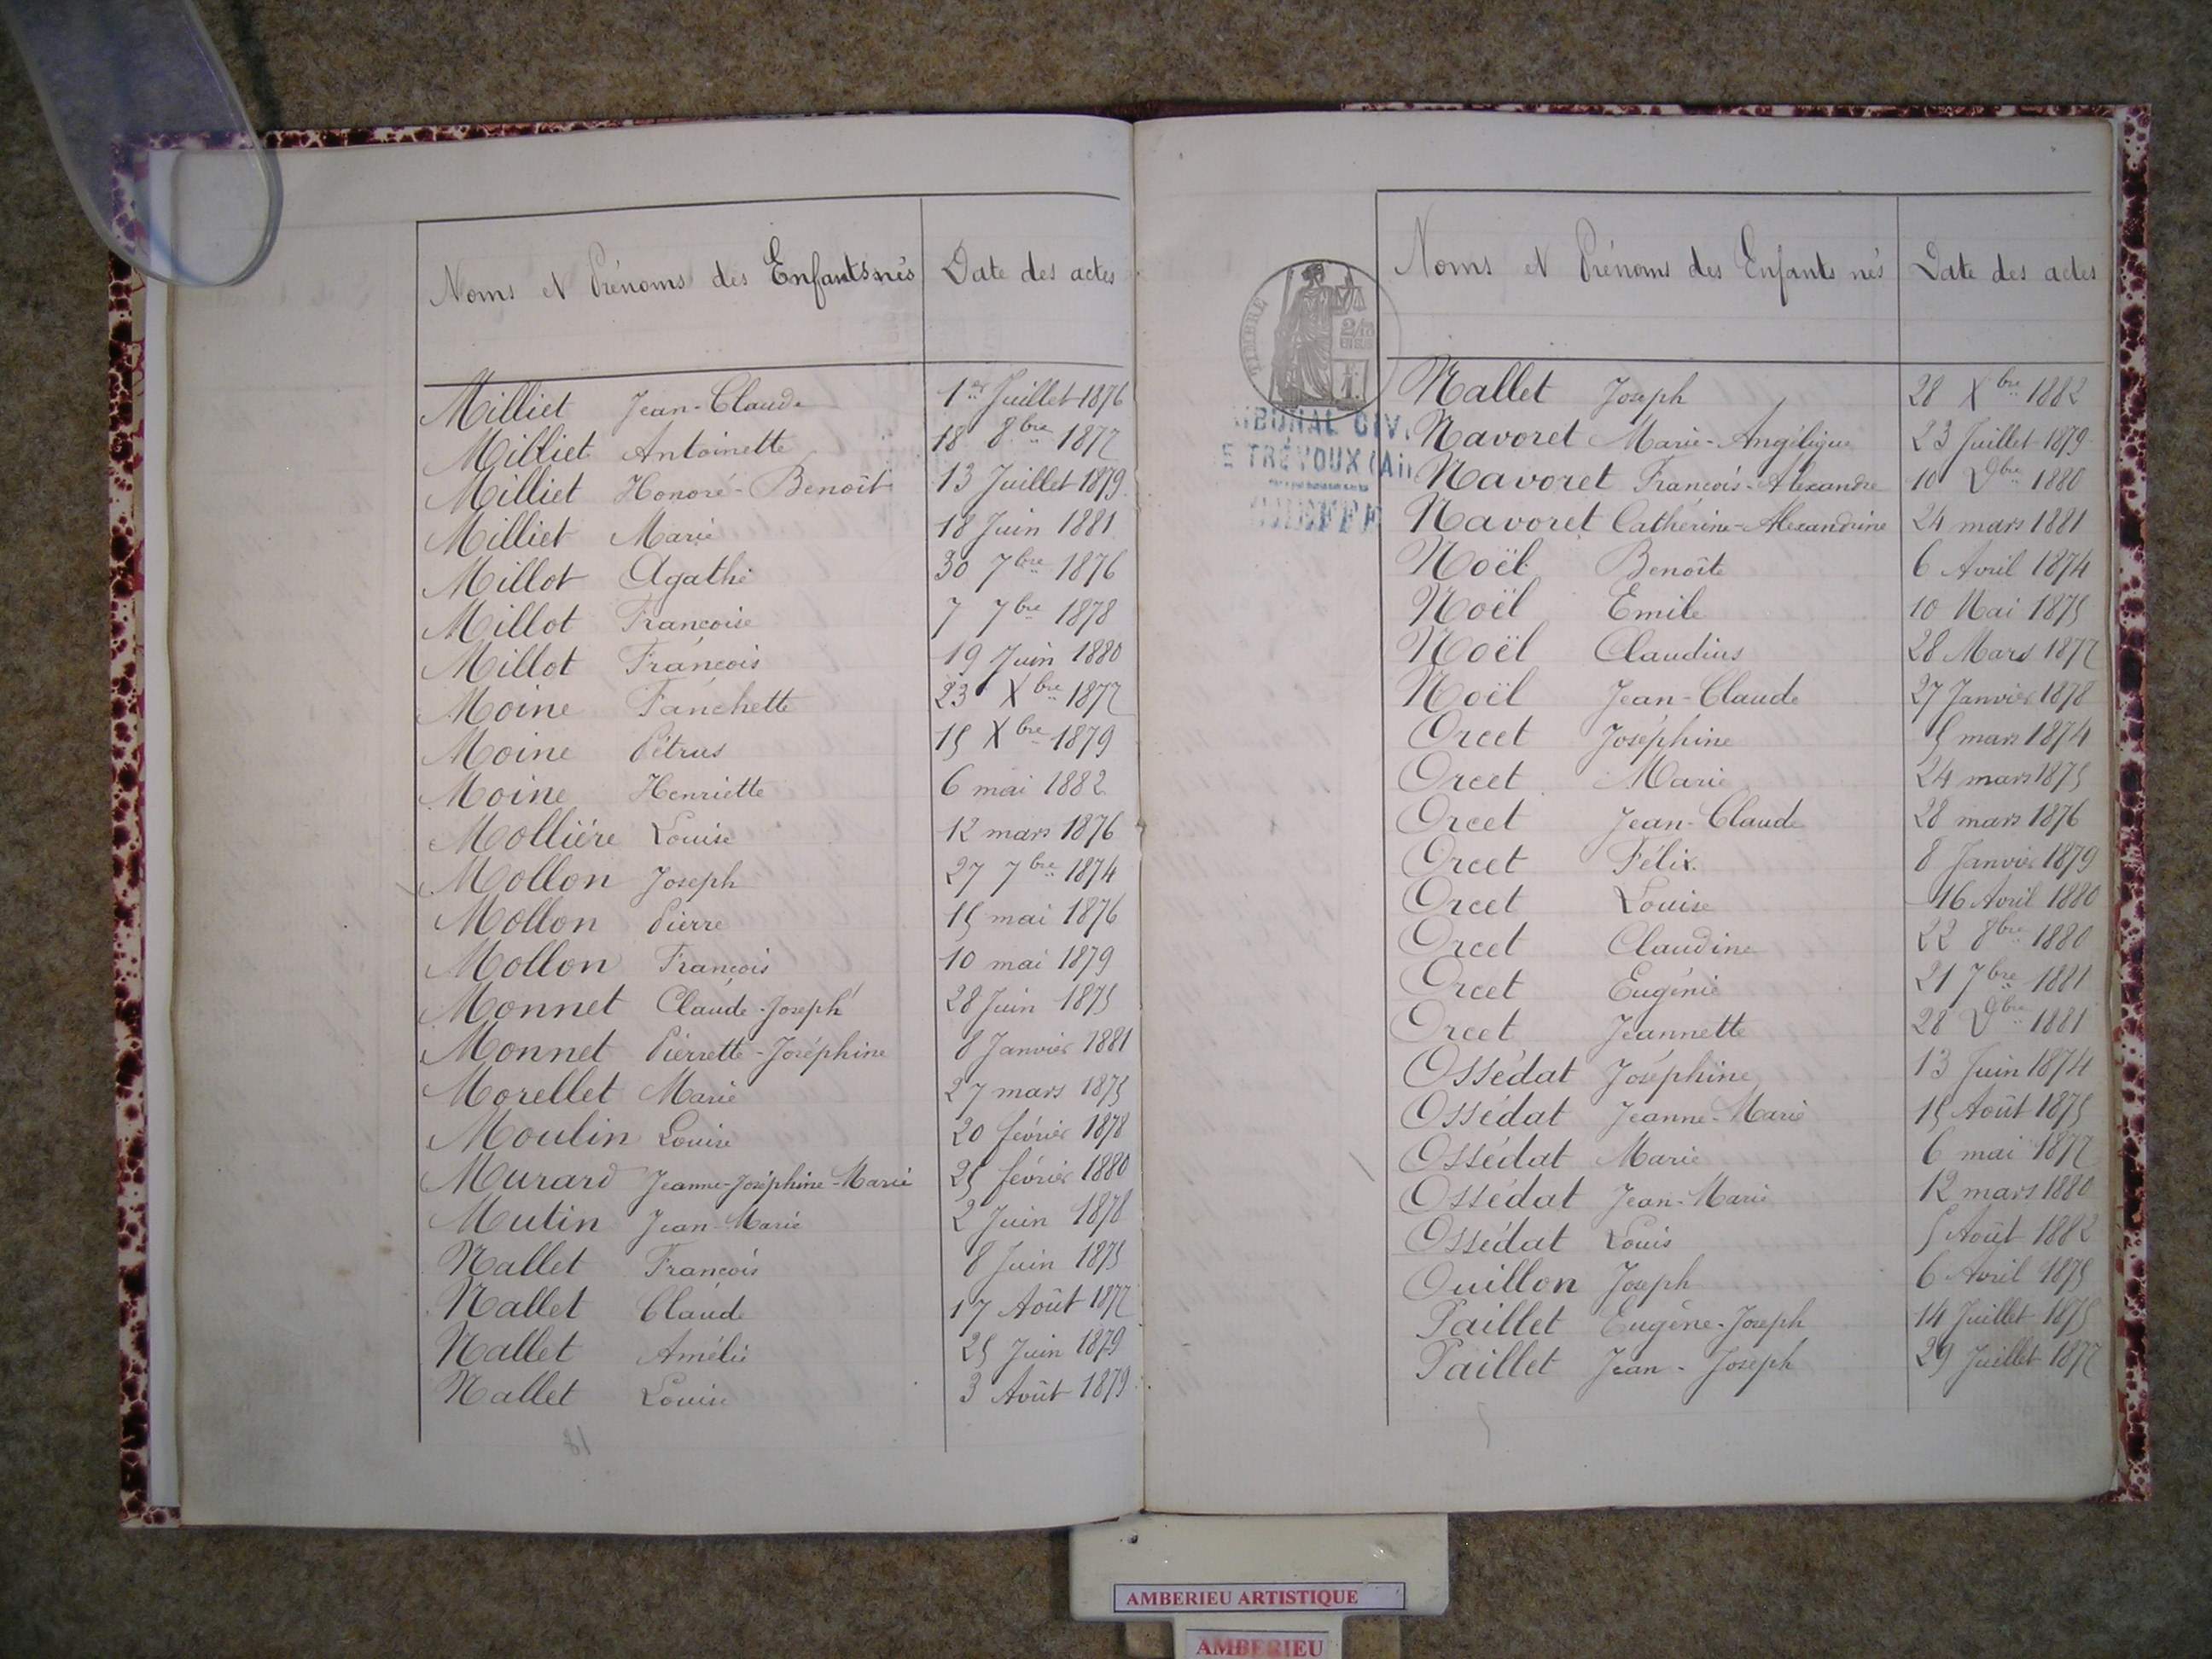 Noms et Prénoms des Enfants nés Date des actes
Milliet Jean-Claude 1er Juillet 1876
Milliet Antoinette 18 8bre 1877
Milliet Honoré-Benoît 13 Juillet 1879
Milliet Marie 18 Juin 1881
Millot Agathe 30 7bre 1876
Millot Françoise 7 7bre 1878
Millot François 19 Juin 1880
Moine Fanchette 23 Xbre 1877
Moine Pétrus 15 Xbre 1879
Moine Henriette 6 mai 1882
Mollière Louise 12 mars 1876
Mollon Joseph 27 7bre 1874
Mollon Pierre 15 mai 1876
Mollon François 10 mai 1879
Monnet Claude-Joseph 28 Juin 1875
Monnet Pierrette-Joséphine 8 Janvier 1881
Morellet Marie 27 mars 1875
Moulin Louise 20 février 1878
Murard Jeanne-Joséphine-Marie 25 février 1880
Mutin Jean-Marie 2 Juin 1878
Nallet François 8 Juin 1875
Nallet Claude 17 Août 1877
Nallet Amélie 25 Juin 1879
Nallet Louise 3 Août 1879
Noms et Prénoms des Enfants nés Date des actes
TIMBRE
Nallet Joseph 28 Xbre 1882
Navoret Marie-Angélique 23 Juillet 1879
Navoret François-Alexandre 10 9bre 1880
Navoret Catherine-Alexandrine 24 mars 1881
Noël Benoîte 6 Avril 1874
Noël Emile 10 Mai 1875
Noël Claudius 28 Mars 1877
Noël Jean-Claude 27 Janvier 1878
Orcet Joséphine 5 mars 1874
Orcet Marie 24 mars 1875
Orcet Jean-Claude 28 mars 1876
Orcet Félix 8 Janvier 1879
Orcet Louise 16 Avril 1880
Orcet Claudine 22 8bre 1880
Orcet Eugénie 21 7bre 1881
Orcet Jeannette 28 9bre 1881
Ossédat Joséphine 13 Juin 1874
Ossédat Jeanne-Marie 15 Août 1875
Ossédat Marie 6 mai 1877
Ossédat Jean-Marie 12 mars 1880
Ossédat Louis 5 Août 1882
Ouillon Joseph 6 Avril 1875
Paillet Eugène-Joseph 14 Juillet 1875
Paillet Jean-Joseph 29 Juillet 1877
IBUNAL CIVI
E TRÉVOUX (Ain
AMBERIEU ARTISTIQUE
AMBERIEU